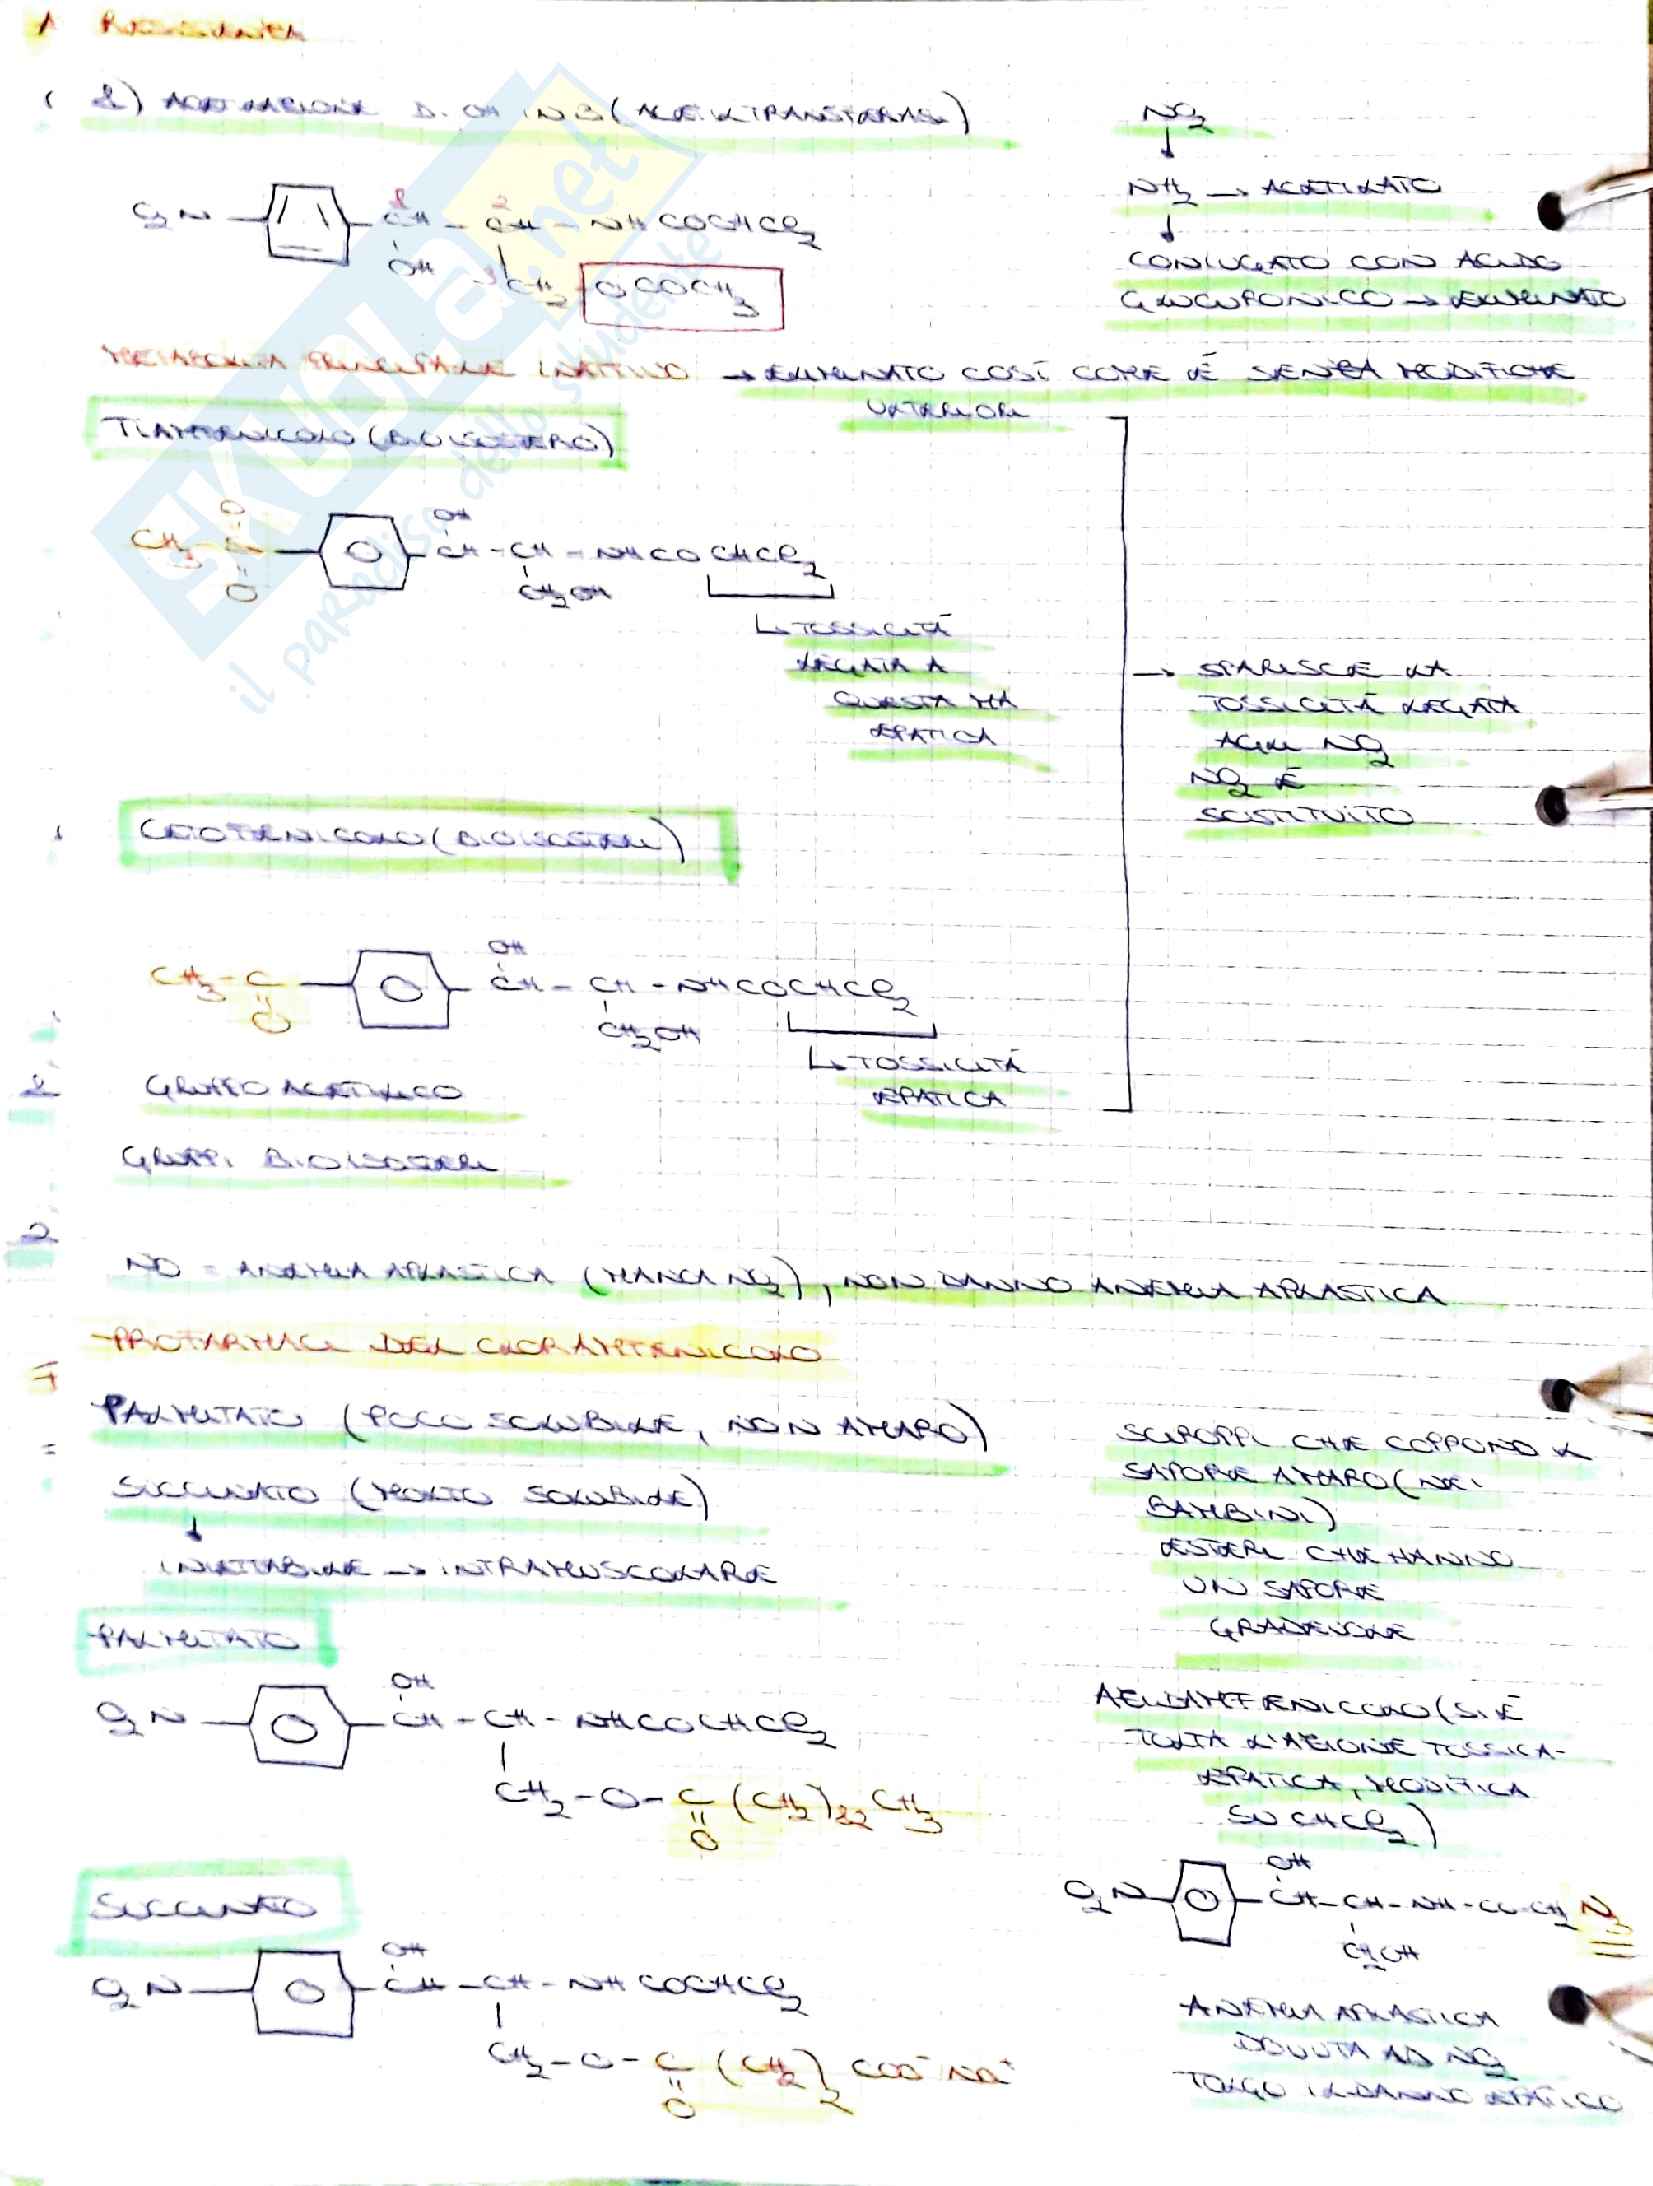 1 RESISTENZA
2) ACETILAZIONE DI OH IN 3 (ACETILTRANSFERASI)
O2N CH - CH - NHCOCHCl2
1 2
OH 3 CH2 OCOCH3
NO2
↓
NH2 → ACETILATO
↓
CONIUGATO CON ACIDO
GLUCURONICO → ELIMINATO
METABOLITA PRINCIPALE INATTIVO → ELIMINATO COSÌ COME È SENZA MODIFICHE
ULTERIORI
TIAMFENICOLO (BIOISOSTERO)
O OH
CH3 - S - CH - CH - NHCOCHCl2
O CH2OH
↳ TOSSICITÀ
LEGATA A
QUESTA MA
EPATICA
→ SPARISCE LA
TOSSICITÀ LEGATA
AGLI NO2
NO2 È
SOSTITUITO
CETOFENICOLO (BIOISOSTERI)
OH
CH3 - C - CH - CH - NHCOCHCl2
O CH2OH
↳ TOSSICITÀ
EPATICA
GRUPPO ACETILICO
GRUPPI BIOISOSTERI
2
NO = ANEMIA APLASTICA (MANCA NO2), NON DANNO ANEMIA APLASTICA
PROFARMACI DEL CLORAMFENICOLO
PALMITATO (POCO SOLUBILE, NON AMARO)
SUCCINATO (MOLTO SOLUBILE)
↓
INIETTABILE → INTRAMUSCOLARE
SCIROPPI CHE COPRONO IL
SAPORE AMARO (NEI
BAMBINI)
ESTERI CHE HANNO
UN SAPORE
GRADEVOLE
PALMITATO
OH
O2N CH - CH - NHCOCHCl2
CH2 - O - C (CH2)22 CH3
O
AZIDAMFENICOLO (SI È
TOLTA L'AZIONE TOSSICA-
EPATICA, MODIFICA
SU CHCl2)
OH
O2N CH - CH - NH - CO - CH2 N3
CH2OH
SUCCINATO
OH
O2N CH - CH - NHCOCHCl2
CH2 - O - C (CH2)2 COO- Na+
O
ANEMIA APLASTICA
DOVUTA AD NO2
TOLGO IL DANNO EPATICO
SKUOLA.net
il paradiso dello studente